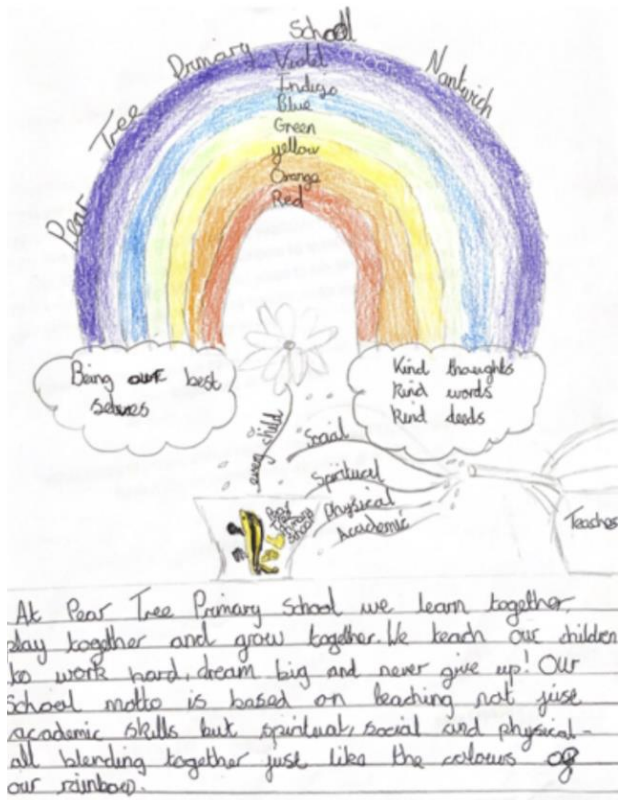 Pear Tree Primary School Nantwich
Violet
Indigo
Blue
Green
yellow
Orange
Red
Being our best
selves
Kind thoughts
Kind words
Kind deeds
every child
Social
Spiritual
Physical
Academic
Teaches
At Pear Tree Primary School we learn together,
play together and grow together. We teach our children
to work hard, dream big and never give up! Our
School motto is based on teaching not just
academic skills but spiritual, social and physical -
all blending together just like the colours of
our rainbow.